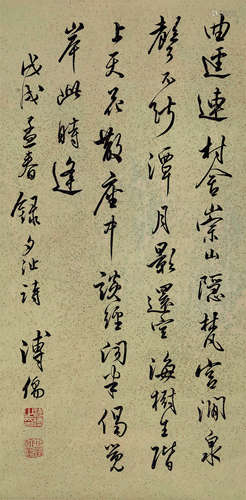 曲逕連村舍崇山隱梵宮澗泉
聲不斷潭月影還空海樹生階
上天花散座中談經聞半偈覺
岸此時逢
戊戌孟春錄夕沚詩
溥儒